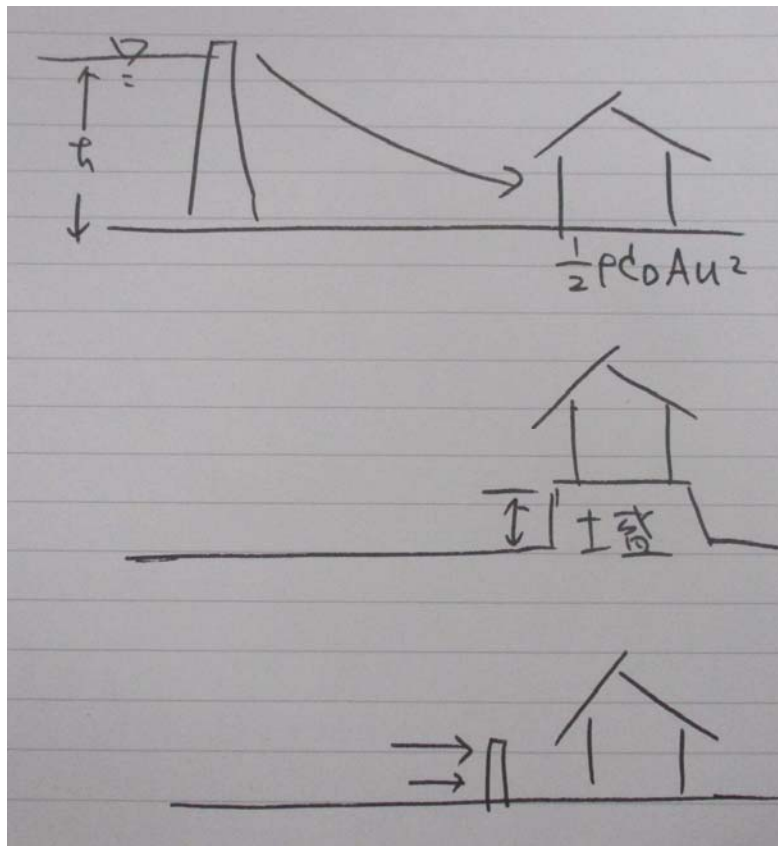 h
½ρC_DAu²
土